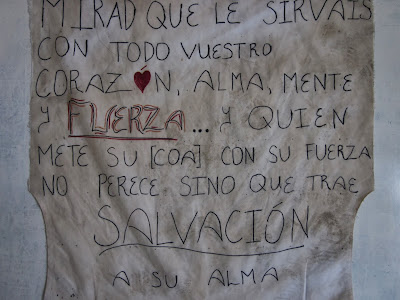 MIRAD QUE LE SIRVAIS
CON TODO VUESTRO
CORAZÓN, ALMA, MENTE
Y FUERZA... Y QUIEN
METE SU [COA] CON SU FUERZA
NO PERECE SINO QUE TRAE
SALVACIÓN
A SU ALMA